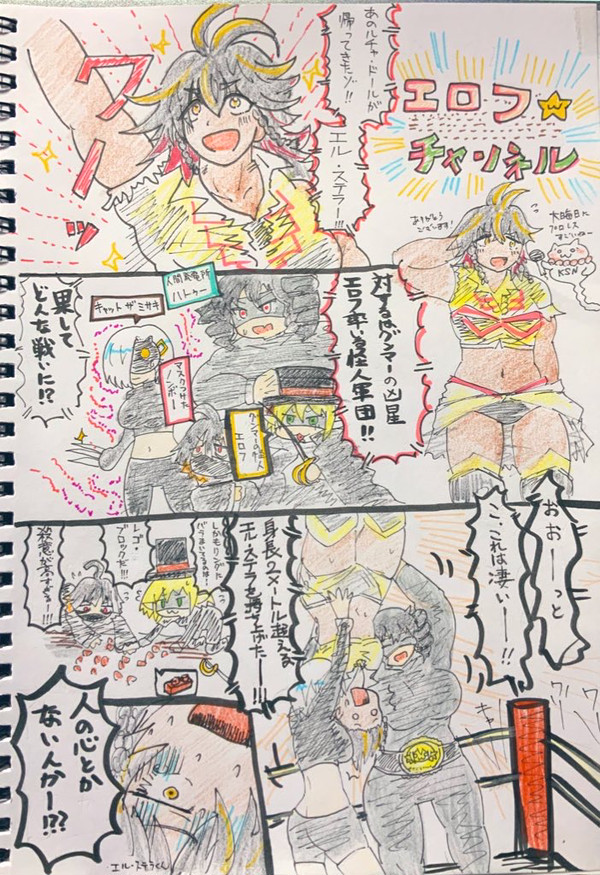 エロフ☆
チャンネル
あのルチャ・ドールが
帰ってきたゾ!!
エル・ステラー!!!
ワアーーッ
ありがとう
ございます!
大晦日に
プロレス
すごいねー
KSN
対するはグンマーの凶星
エロフ率いる怪人軍団!!
人間発電所
ハトゥー
キャット ザ ミサキ
マスクつけた
エロフ
果して
どんな戦いに!?
おおーーっと
こ、これは凄いーー!!
身長2メートル超える
エル・ステラを持ち上げたーー!!!
ワー
ワー
キャー
しかもリングに
バラまいてるのは…
レゴ・
ブロックだ!!!
殺意が高すぎるー!!!
人の心とか
ないんかー!??
エル・ステラくん